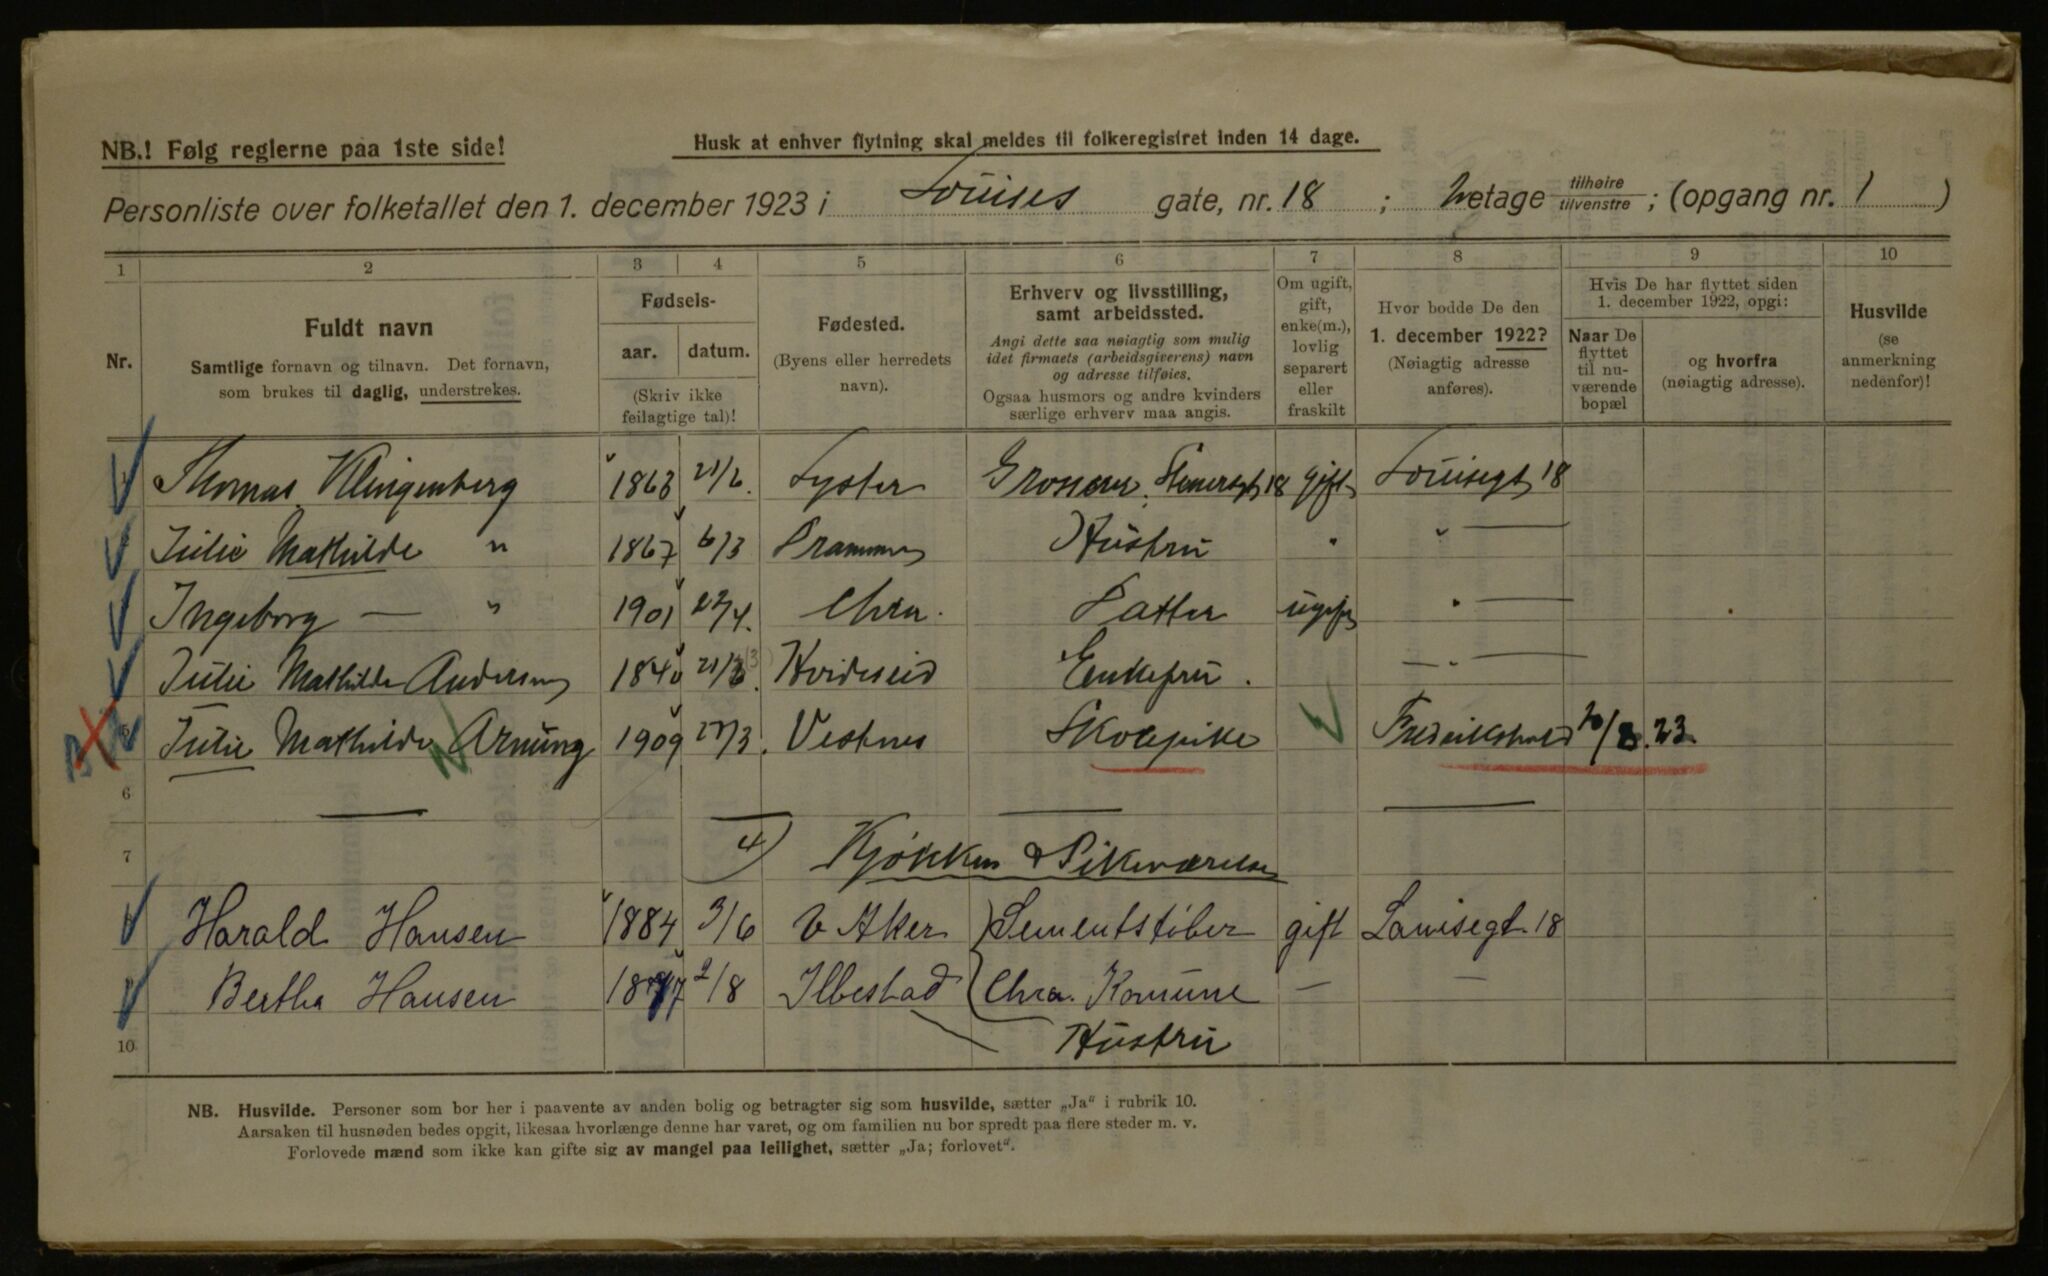 NB.! Følg reglerne paa 1ste side!
Husk at enhver flytning skal meldes til folkeregistret inden 14 dage.
Personliste over folketallet den 1. december 1923 i Louises gate, nr. 18 ; etage tilhøire tilvenstre ; (opgang nr. 1 )
1 2 3 4 5 6 7 8 9 10
Nr.
Fuldt navn
Samtlige fornavn og tilnavn. Det fornavn,
som brukes til daglig, understrekes.
Fødsels-
aar. datum.
(Skriv ikke
feilagtige tal)!
Fødested.
(Byens eller herredets
navn).
Erhverv og livsstilling,
samt arbeidssted.
Angi dette saa nøiagtig som mulig
idet firmaets (arbeidsgiverens) navn
og adresse tilføies.
Ogsaa husmors og andre kvinders
særlige erhverv maa angis.
Om ugift,
gift,
enke(m.),
lovlig
separert
eller
fraskilt
Hvor bodde De den
1. december 1922?
(Nøiagtig adresse
anføres).
Hvis De har flyttet siden
1. december 1922, opgi:
Naar De
flyttet
til nu-
værende
bopæl
og hvorfra
(nøiagtig adresse).
Husvilde
(se
anmerkning
nedenfor)!
Thomas Klingenberg 1863 21/6. Lyster Grosserer. 18 gift Louisegt 18
Julie Mathilde " 1867 6/3 Hustru " —
Ingeborg — " 1901 22/4. Chra. Datter ugift " —
Julie Mathilde Andersen 1840 Hvideseid Enkefru. — " —
5 Julie Mathilde Arnung 1909 27/3. Vestnes Skolepike Fredrikshald 23.
6
7 4) Kjøkken & Pikeværelse
Harald Hansen 1884 3/6 V Aker Sementstøber gift Louisegt. 18
Bertha Hansen 2/8 Ibestad Chra. Komune — —
10 Hustru
NB. Husvilde. Personer som bor her i paavente av anden bolig og betragter sig som husvilde, sætter „Ja" i rubrik 10.
Aarsaken til husnøden bedes opgit, likesaa hvorlænge denne har varet, og om familien nu bor spredt paa flere steder m. v.
Forlovede mænd som ikke kan gifte sig av mangel paa leilighet, sætter „Ja; forlovet".